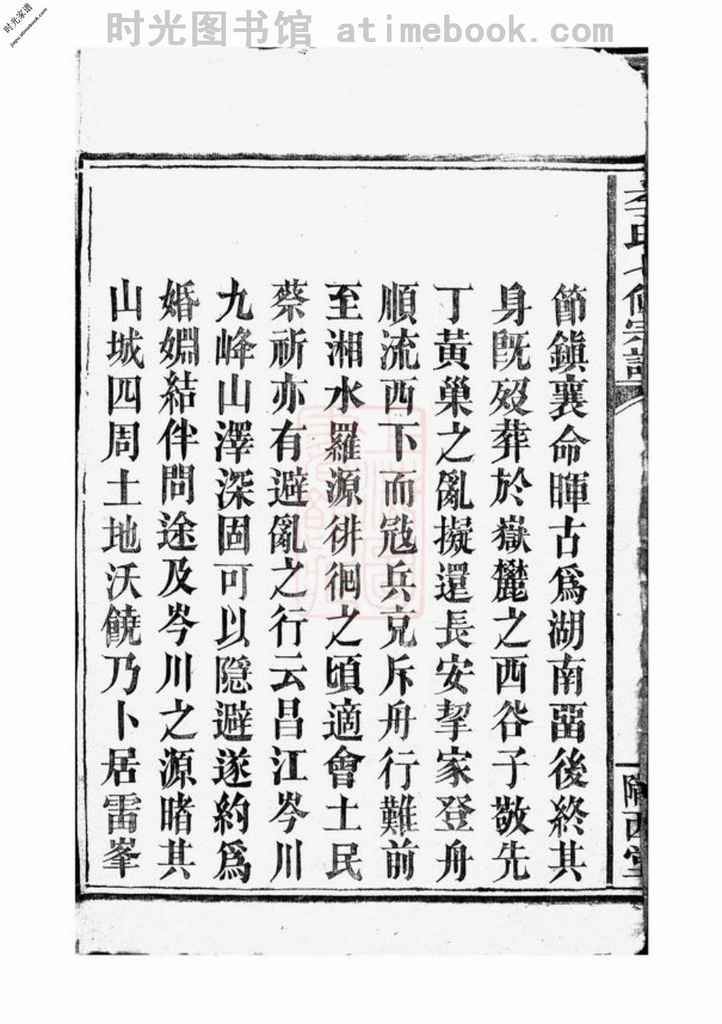 时光图书馆 © atimebook.com
时光家谱
jiapu.atimebook.com
節鎮襄命暉古爲湖南畱後終其
身旣歿葬於嶽麓之西谷子敬先
丁黃巢之亂擬還長安挈家登舟
順流西下而寇兵充斥舟行難前
至湘水羅源徘徊之頃適會土民
蔡祈亦有避亂之行云昌江岑川
九峰山澤深固可以隱避遂約爲
婚姻結伴問途及岑川之源睹其
山城四周土地沃饒乃卜居雷峯
李氏七修宗譜
一
隴西堂